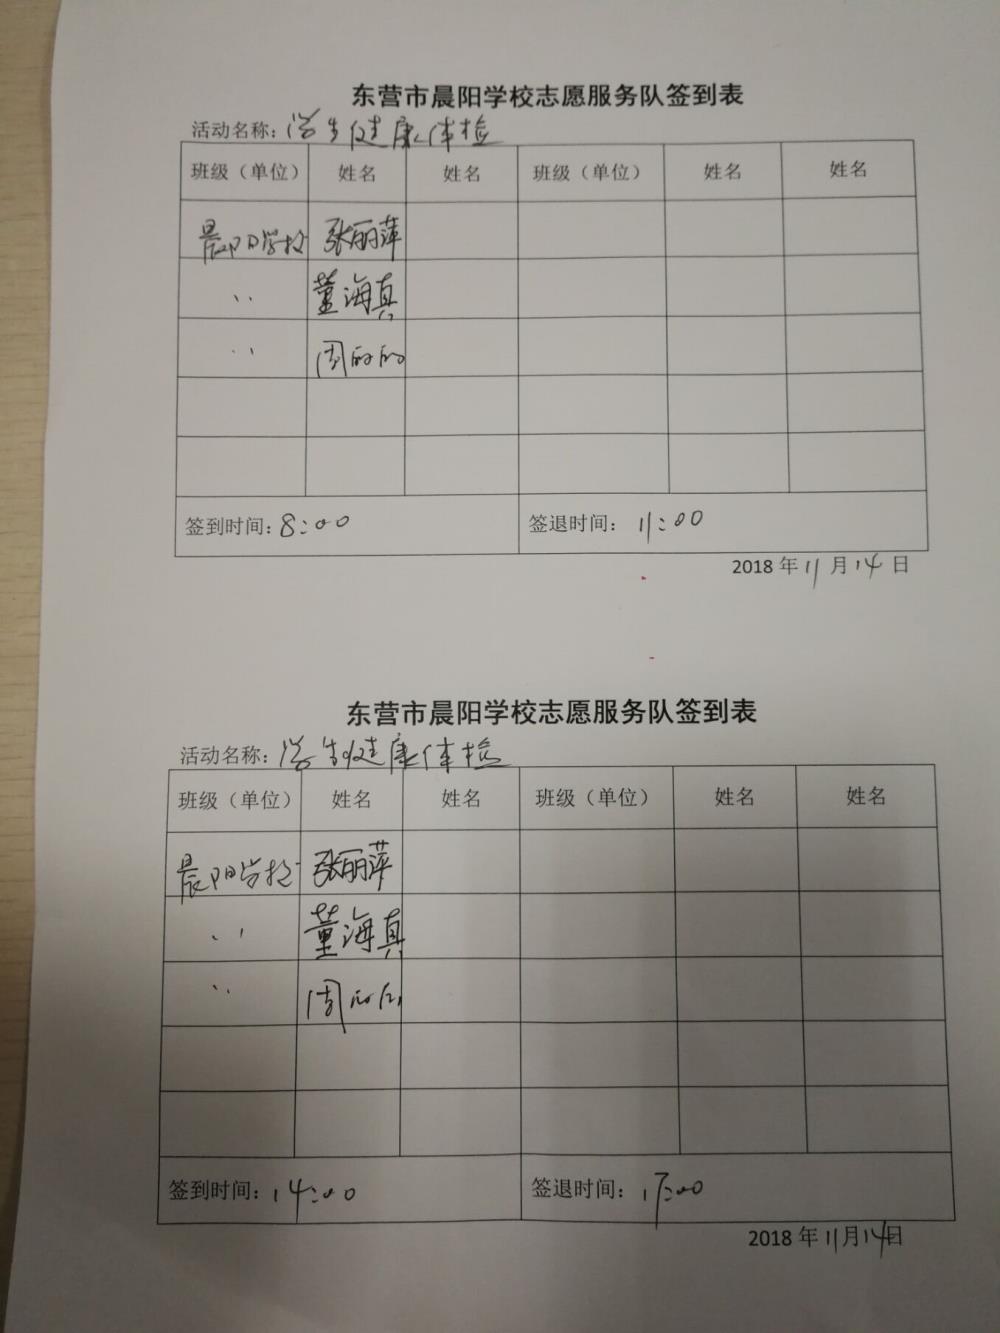 东营市晨阳学校志愿服务队签到表
活动名称：学生健康体检
班级（单位） 姓名 姓名 班级（单位） 姓名 姓名
晨阳学校 张丽萍
〃 董海真
〃 周
签到时间：8:00 签退时间：11:00
2018 年 11 月 14 日
东营市晨阳学校志愿服务队签到表
活动名称：学生健康体检
班级（单位） 姓名 姓名 班级（单位） 姓名 姓名
晨阳学校 张丽萍
〃 董海真
〃 周
签到时间：14:00 签退时间：17:00
2018 年 11 月 14 日